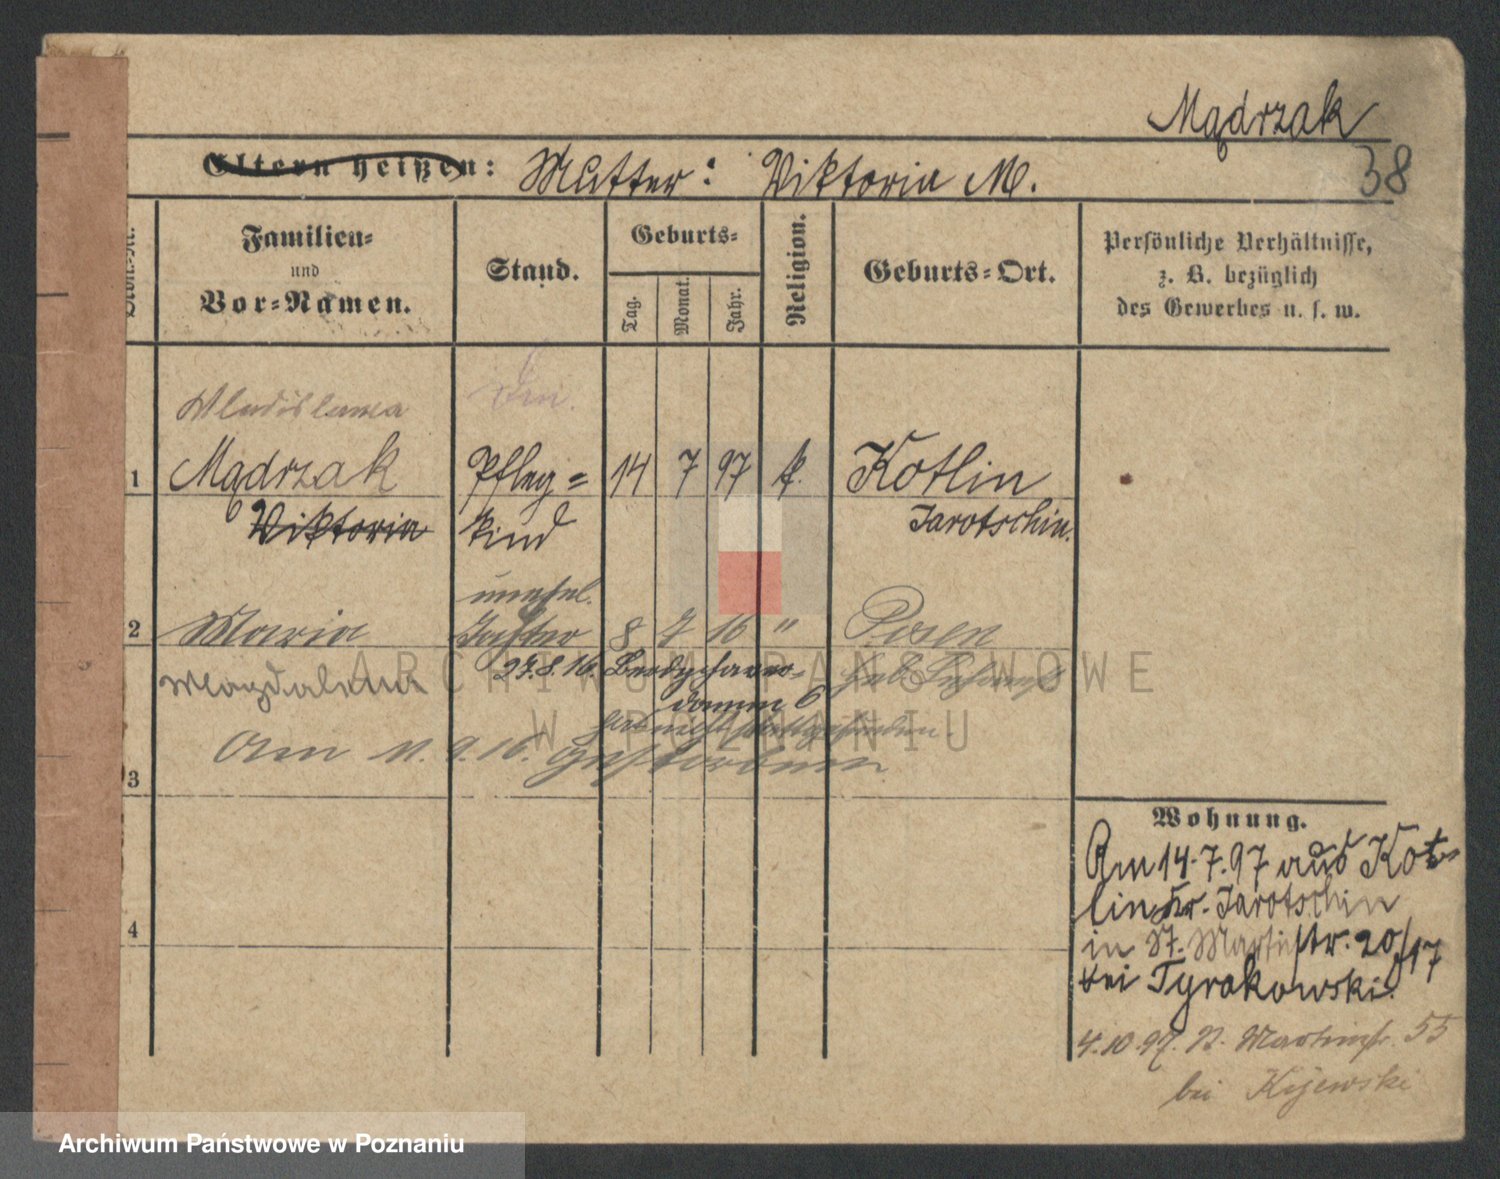 Mądrzak
38
Eltern heißen: Mutter: Viktoria M.
Familien-
und
Vor-Namen.
Stand.
Geburts-
Tag.
Monat.
Jahr.
Religion.
Geburts-Ort.
Persönliche Verhältnisse,
z. B. bezüglich
des Gewerbes u. s. w.
Wladislawa
1 Mądrzak Pfleg= 14 7 97 k. Kotlin
Viktoria kind Jarotschin.
unehel.
2 Maria Tochter 8 7 16 " Posen
Magdalena 27.8.16.
damm 6
hat nicht stattgefunden.
Am 11.9.16. gestorben
3
4
Wohnung.
Am 14.7.97 aus Kot-
lin Kr. Jarotschin
in St. Martinstr. 20/17
bei Tyrakowski.
4.10.97. St. Martinstr. 55
bei Kijewski
ARCHIWUM PAŃSTWOWE
W POZNANIU
Archiwum Państwowe w Poznaniu